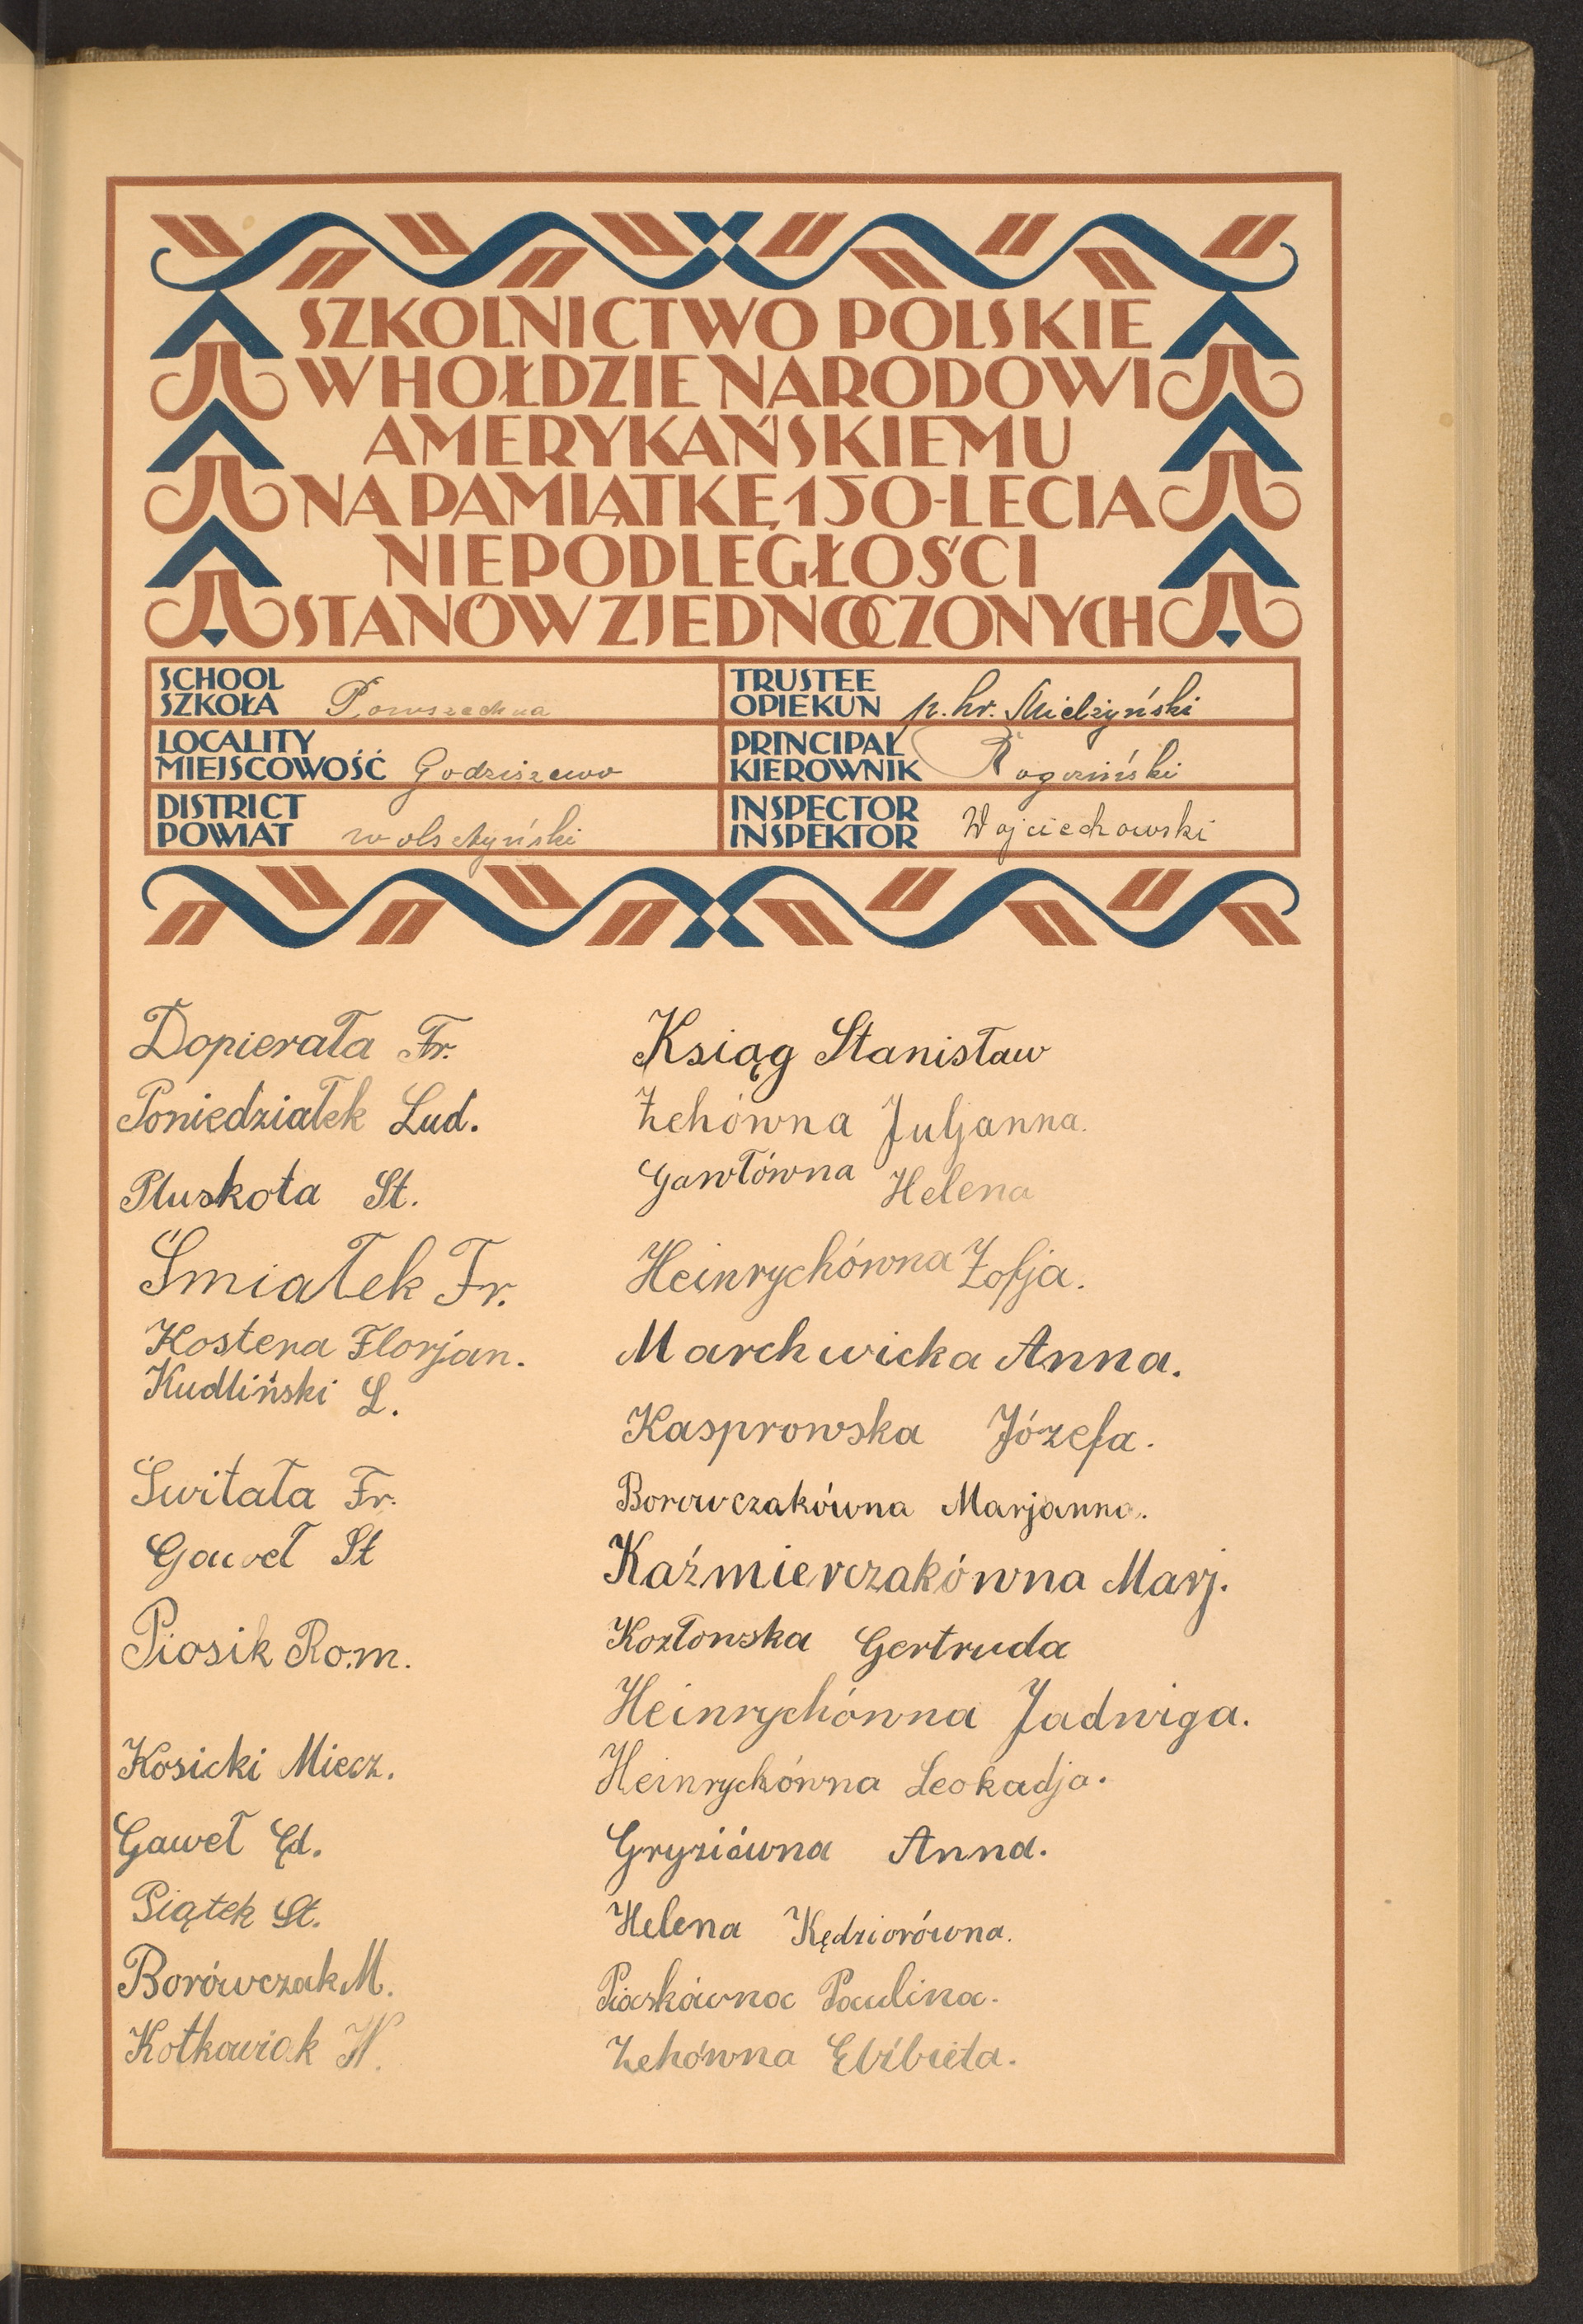 SZKOLNICTWO POLSKIE
W HOŁDZIE NARODOWI
AMERYKAŃSKIEMU
NA PAMIĄTKĘ 150-LECIA
NIEPODLEGŁOŚCI
STANÓW ZJEDNOCZONYCH
SCHOOL
SZKOŁA Powszechna
TRUSTEE
OPIEKUN p. hr. Mielżyński
LOCALITY
MIEJSCOWOŚĆ Godziszewo
PRINCIPAŁ
KIEROWNIK Rogoziński
DISTRICT
POWIAT wolsztyński
INSPECTOR
INSPEKTOR Wojciechowski
Dopierała Fr.
Poniedziałek Lud.
Pluskota St.
Śmiałek Fr.
Kostera Florjan.
Kudliński L.
Świtała Fr.
Gaweł St
Piosik Rom.
Kosicki Miecz.
Gaweł Ed.
Piątek St.
Borówczak M.
Kotkowiak W.
Ksiąg Stanisław
Żehówna Juljanna.
Gawłówna Helena
Heinrychówna Zofja.
Marchwicka Anna.
Kasprowska Józefa.
Borowczakówna Marjanna.
Kaźmierczakówna Marj.
Kozłowska Gertruda
Heinrychówna Jadwiga.
Heinrychówna Leokadja.
Gryziówna Anna.
Helena Kędziorówna.
Piaskówna Paulina.
Żehówna Elżbieta.